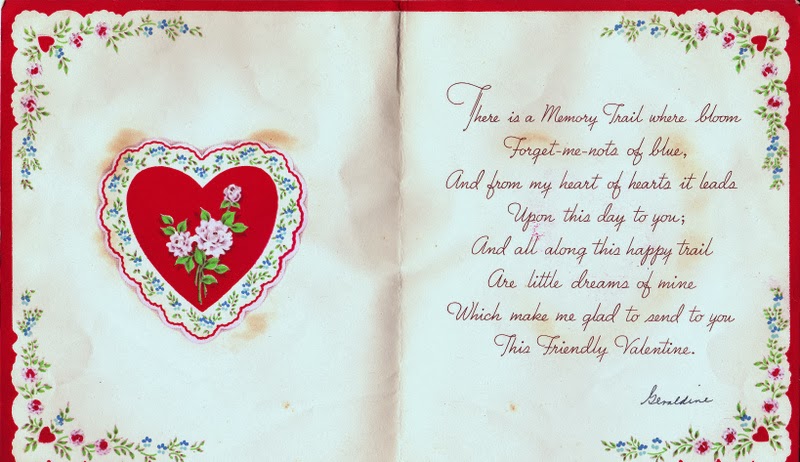 There is a Memory Trail where bloom
Forget-me-nots of blue,
And from my heart of hearts it leads
Upon this day to you;
And all along this happy trail
Are little dreams of mine
Which make me glad to send to you
This Friendly Valentine.
Geraldine